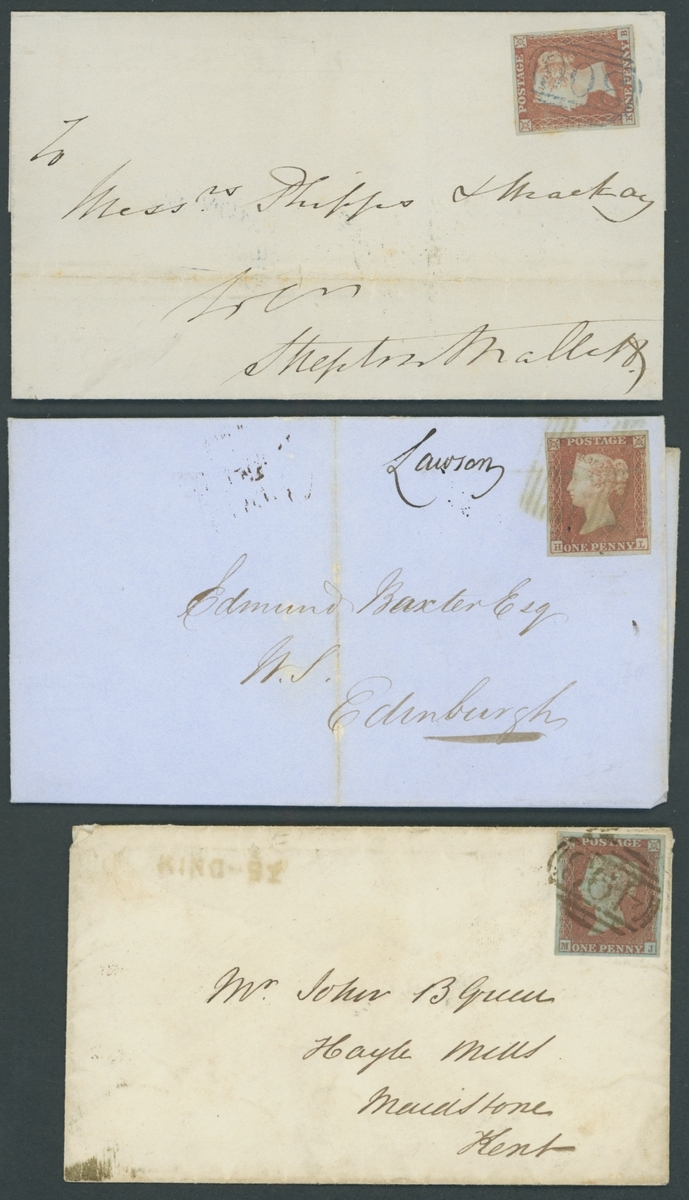 POSTAGE
B
ONE PENNY
To
Mess.rs Phipps & Mackay
Shepton Mallett
Lawson
POSTAGE
H ONE PENNY L
Edmund Baxter Esq
W.S.
Edinburgh
POSTAGE
N ONE PENNY J
Mr. John B Green
Hayle Mills
Maidstone
Kent